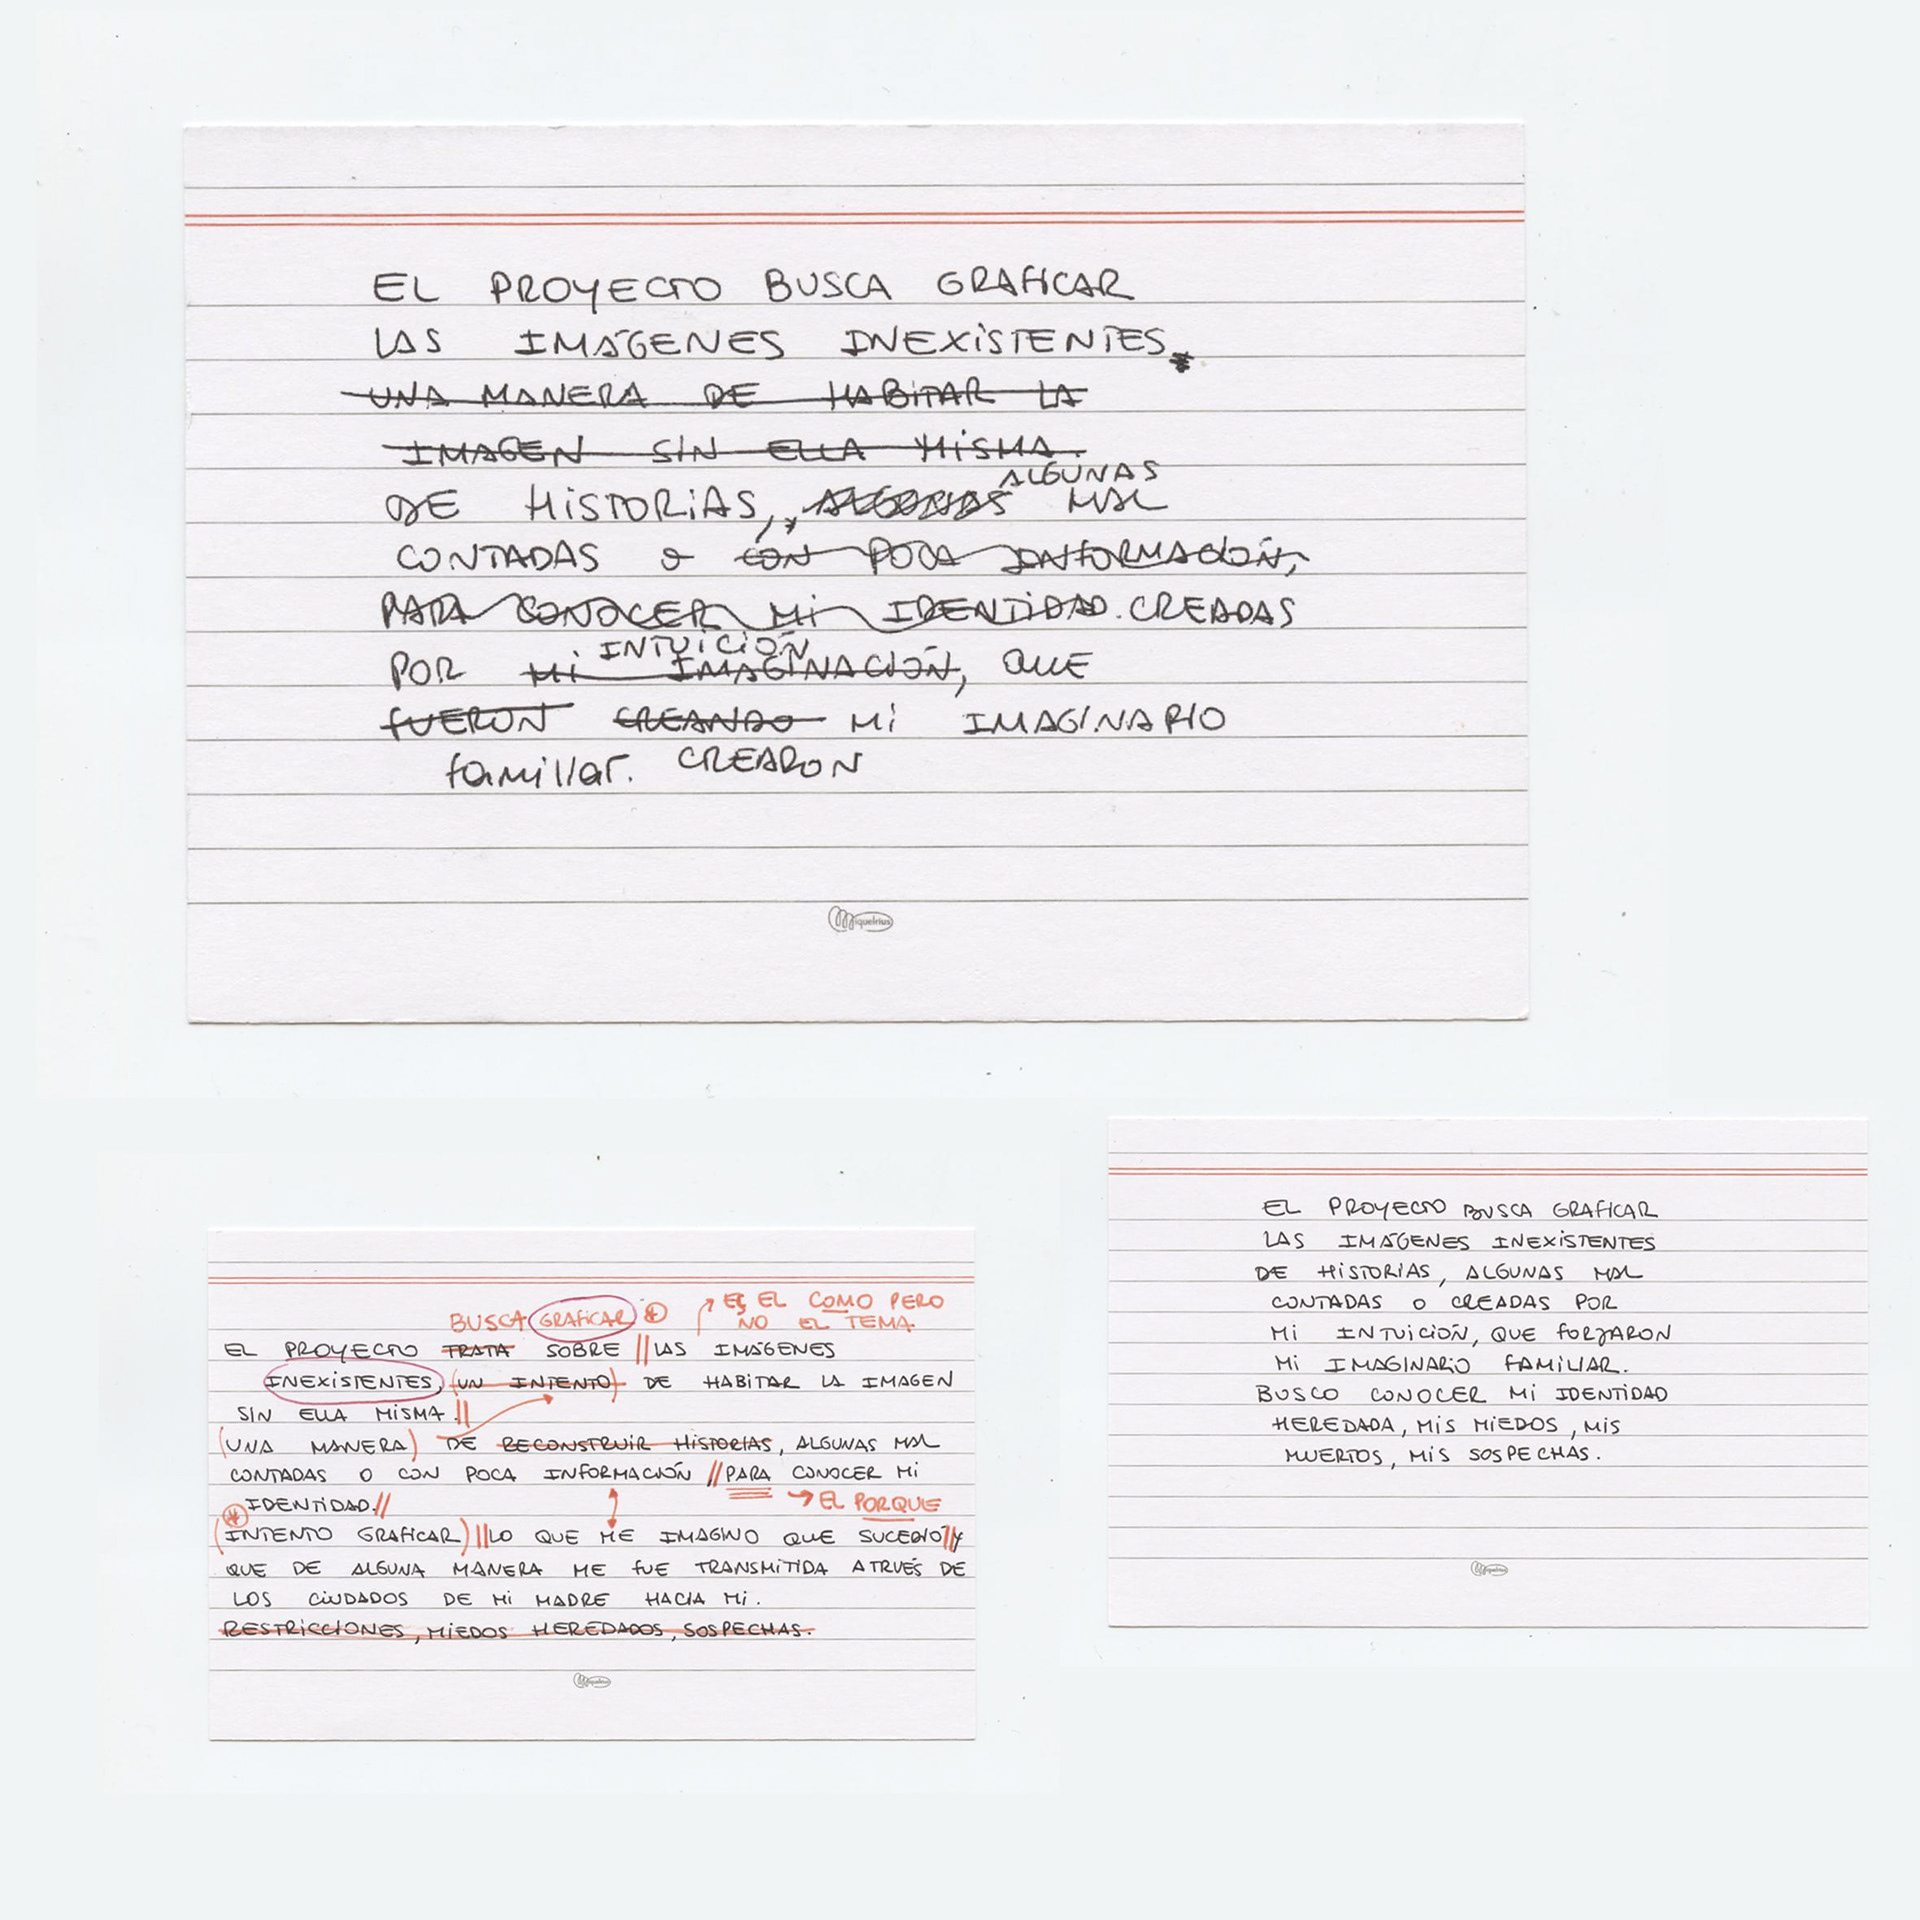 EL PROYECTO BUSCA GRAFICAR
LAS IMÁGENES INEXISTENTES
UNA MANERA DE HABITAR LA
IMAGEN SIN ELLA MISMA.
ALGUNAS
DE HISTORIAS, ALGUNAS MAL
CONTADAS O CON POCA INFORMACIÓN,
PARA CONOCER MI IDENTIDAD. CREADAS
INTUICIÓN
POR MI IMAGINACIÓN, QUE
FUERON CREANDO MI IMAGINARIO
familiar. CREARON
Miquelrius
BUSCA GRAFICAR * ES EL COMO PERO
NO EL TEMA.
EL PROYECTO TRATA SOBRE // LAS IMÁGENES
INEXISTENTES, (UN INTENTO) DE HABITAR LA IMAGEN
SIN ELLA MISMA. //
(UNA MANERA) DE RECONSTRUIR HISTORIAS, ALGUNAS MAL
CONTADAS O CON POCA INFORMACIÓN // PARA CONOCER MI
IDENTIDAD. // → EL PORQUE
* (INTENTO GRAFICAR) // LO QUE ME IMAGINO QUE SUCEDIÓ // Y
QUE DE ALGUNA MANERA ME FUE TRANSMITIDA ATRVÉS DE
LOS CIUDADOS DE MI MADRE HACIA MI.
RESTRICCIONES, MIEDOS HEREDADOS, SOSPECHAS.
Miquelrius
EL PROYECTO BUSCA GRAFICAR
LAS IMÁGENES INEXISTENTES
DE HISTORIAS, ALGUNAS MAL
CONTADAS O CREADAS POR
MI INTUICIÓN, QUE FORJARON
MI IMAGINARIO FAMILIAR.
BUSCO CONOCER MI IDENTIDAD
HEREDADA, MIS MIEDOS, MIS
MUERTOS, MIS SOSPECHAS.
Miquelrius